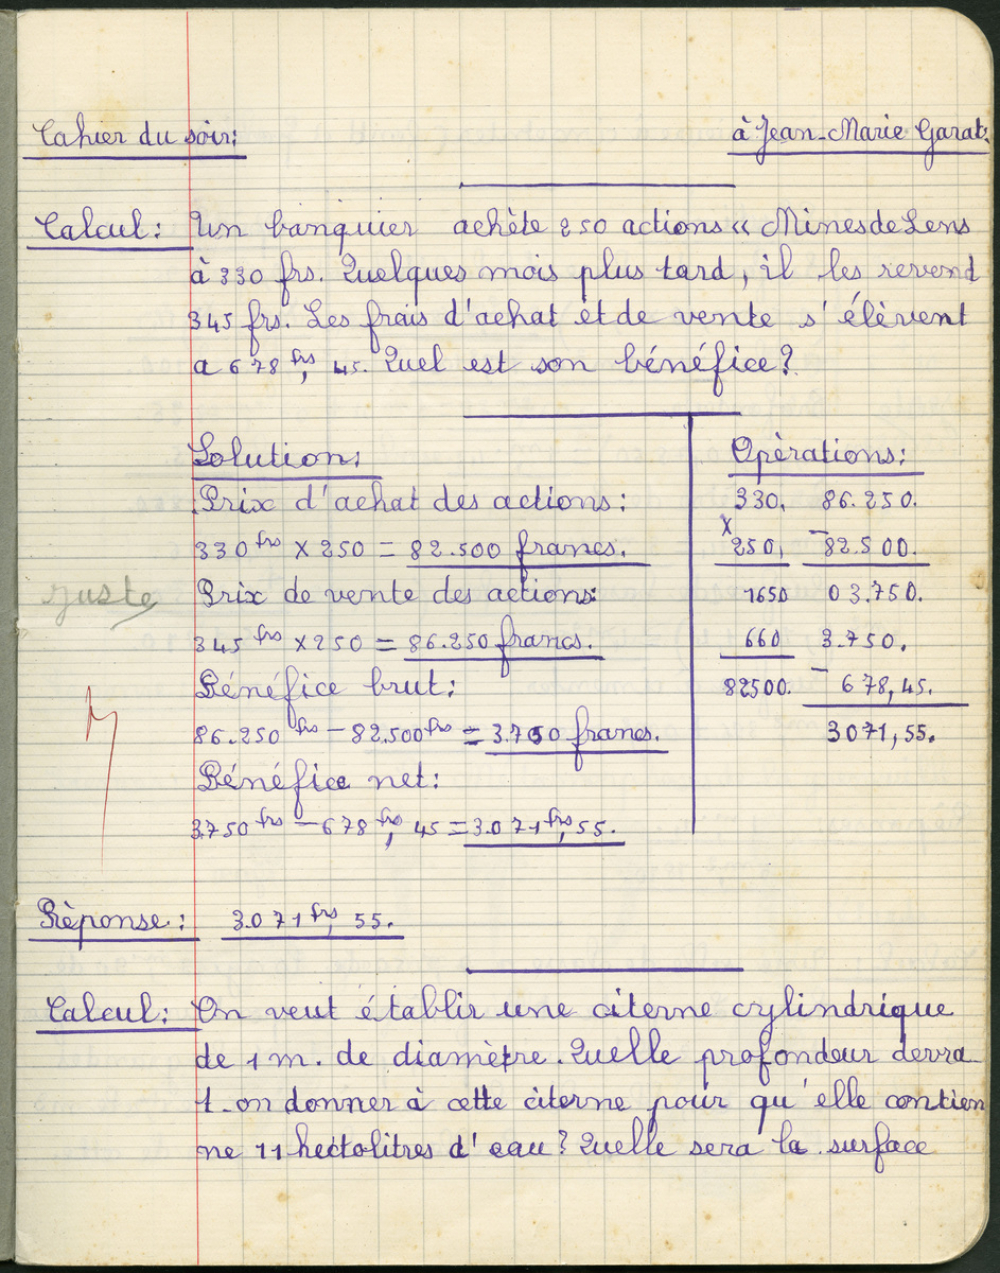 Cahier du soir:
à Jean-Marie Garat.
Calcul: Un banquier achète 250 actions « Mines de Lens
à 330 frs. Quelques mois plus tard, il les revend
345 frs. Les frais d'achat et de vente s'élèvent
a 678 frs, 45. Quel est son bénéfice?
Solution:
Prix d'achat des actions:
330 frs × 250 = 82.500 francs.
juste
Prix de vente des actions:
345 frs × 250 = 86.250 francs.
Bénéfice brut:
86.250 frs - 82.500 frs = 3.750 francs.
Bénéfice net:
3750 frs - 678 frs, 45 = 3.071 frs, 55.
Opèrations:
330. 86.250.
× 250. - 82.500.
1650 03.750.
660 3.750.
82500. - 678,45.
3071,55.
Rèponse: 3.071 frs, 55.
Calcul: On veut établir une citerne cylindrique
de 1 m. de diamètre. Quelle profondeur devra
t-on donner à cette citerne pour qu'elle contien
ne 11 hectolitres d'eau? Quelle sera la surface